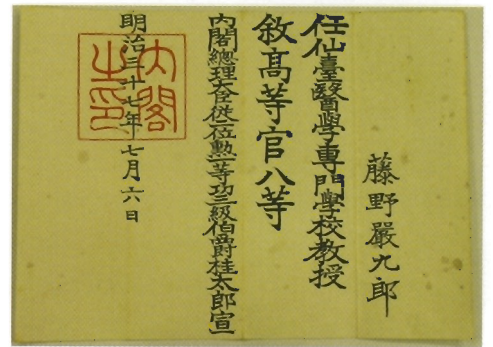 藤野嚴九郎
任仙臺醫學專門學校教授
敘高等官八等
內閣總理大臣從二位勲一等功三級伯爵桂太郎宣
明治三十七年七月六日
內閣之印